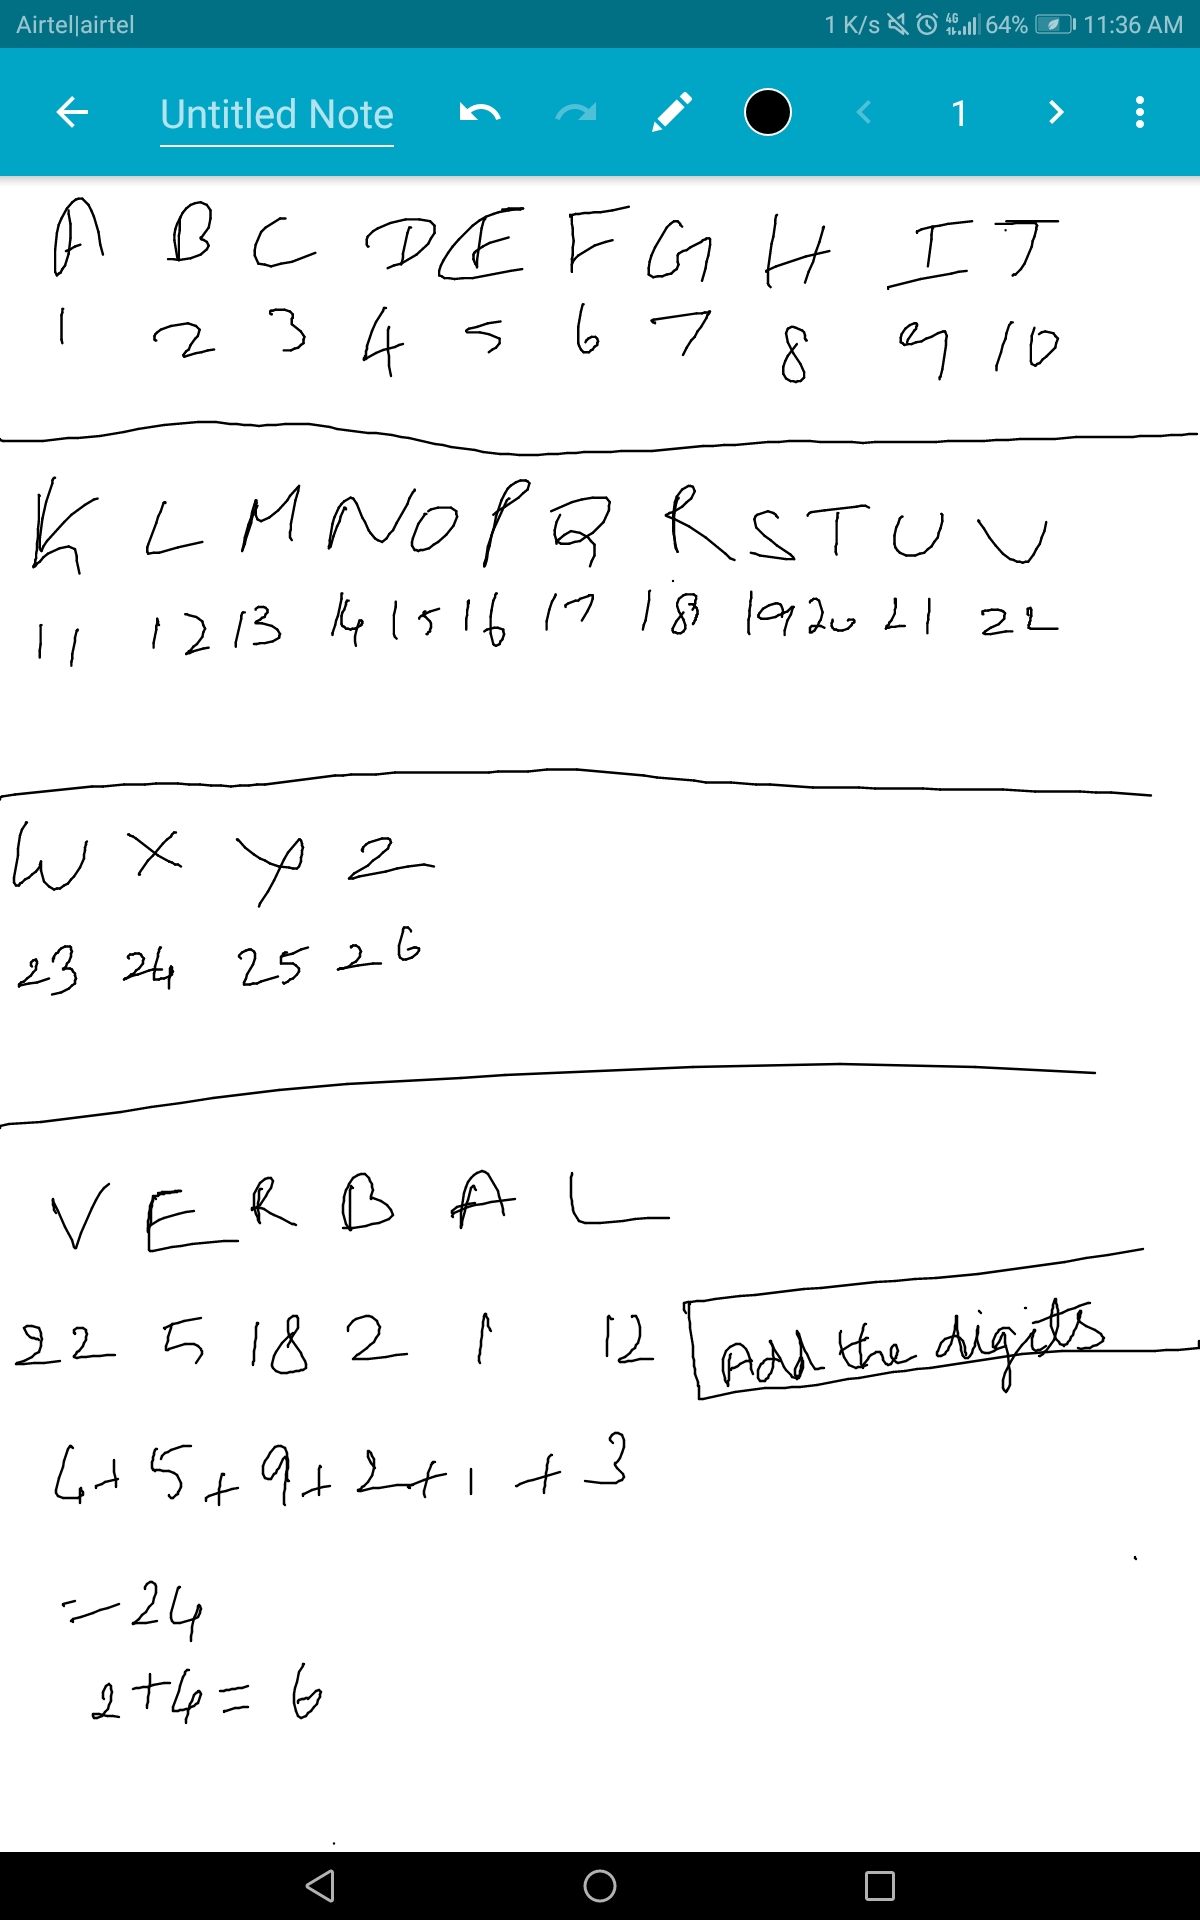 Airtel|airtel 1 K/s 4G 64% 11:36 AM
Untitled Note 1
A B C D E F G H I J
1 2 3 4 5 6 7 8 9 10
K L M N O P Q R S T U V
11 12 13 14 15 16 17 18 19 20 21 22
W X Y Z
23 24 25 26
V E R B A L
22 5 18 2 1 12 Add the digits
4+5+9+2+1+3
=24
2+4=6